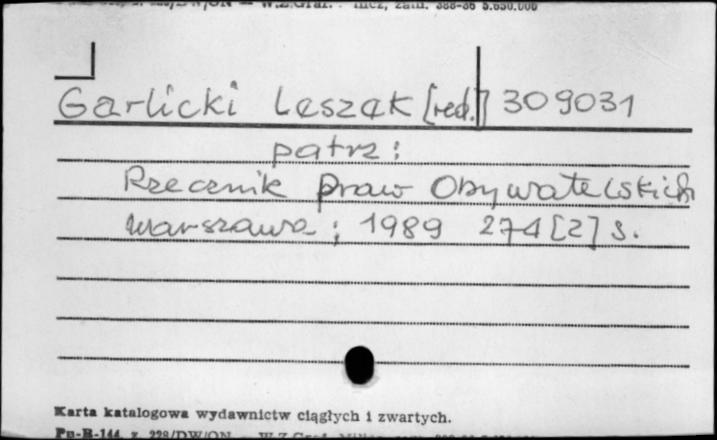 Garlicki Leszek [red.] 309031
patrz:
Rzecznik Praw Obywatelskich
Warszawa; 1989 274[2] s.
Karta katalogowa wydawnictw ciągłych i zwartych.